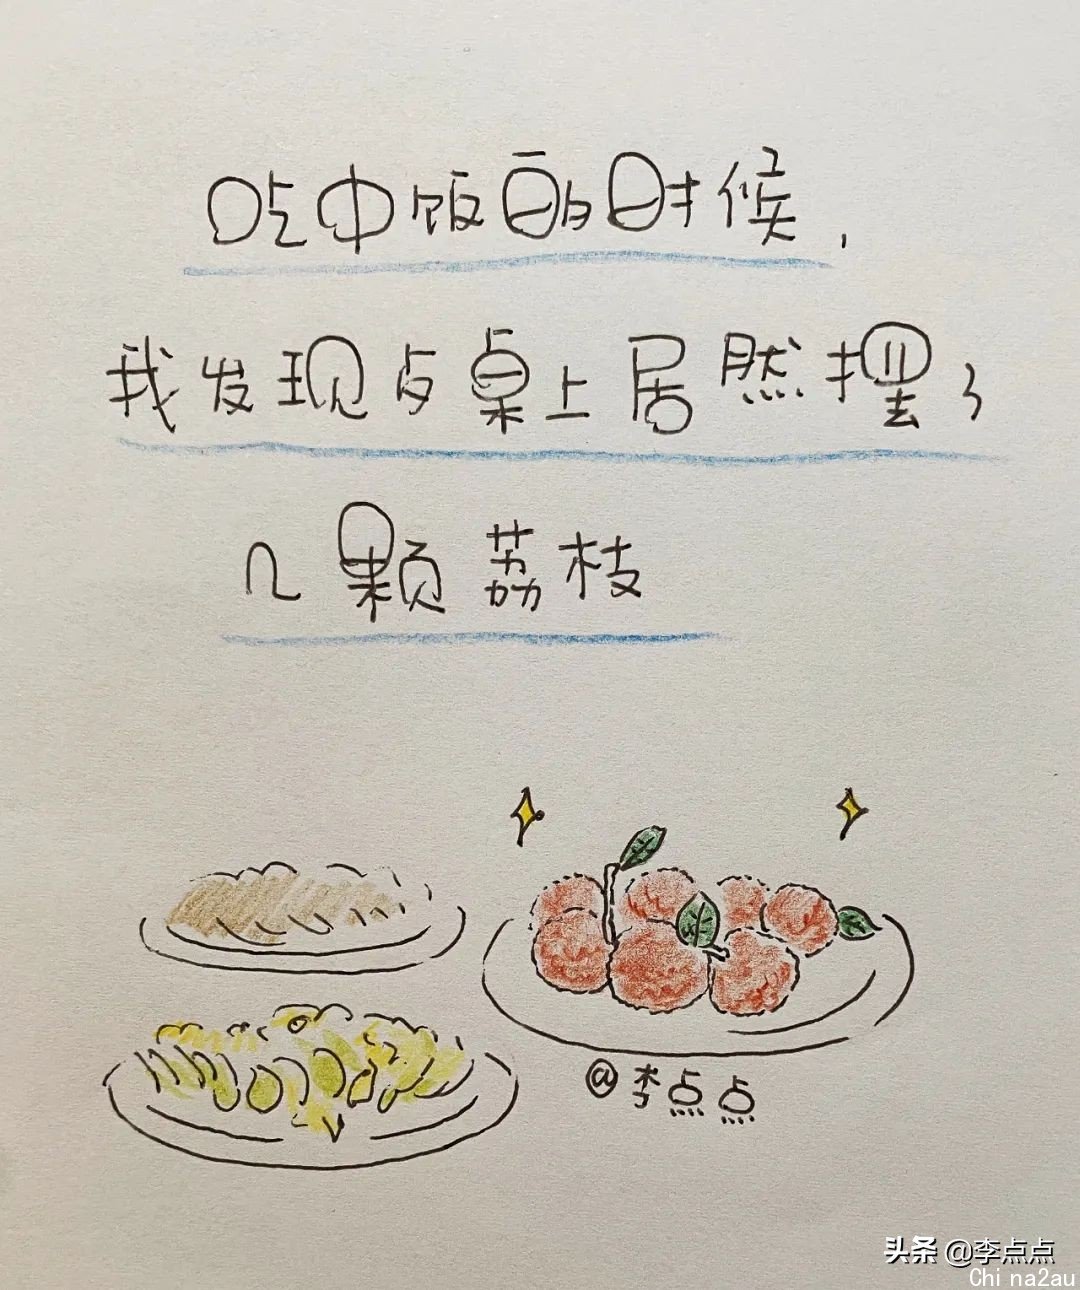 吃中饭的时候,
我发现桌上居然摆了
几颗荔枝
@李点点
头条 @李点点
Chi na2au